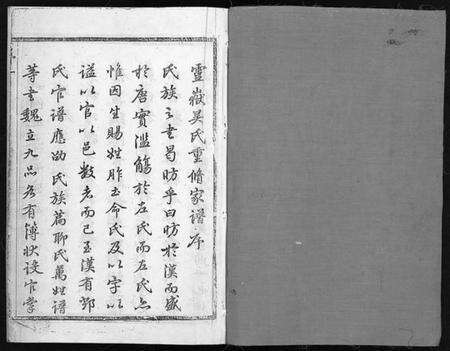 靈嶽吳氏重脩家譜序
氏族之書曷昉乎曰昉於漢而盛
於唐實濫觴於左氏而左氏亦
惟因生賜姓胙土命氏及以字以
謚以官以邑数者而已至漢有鄧
氏官譜應劭氏族篇聊氏萬姓譜
等書魏立九品名有簿狀設官掌